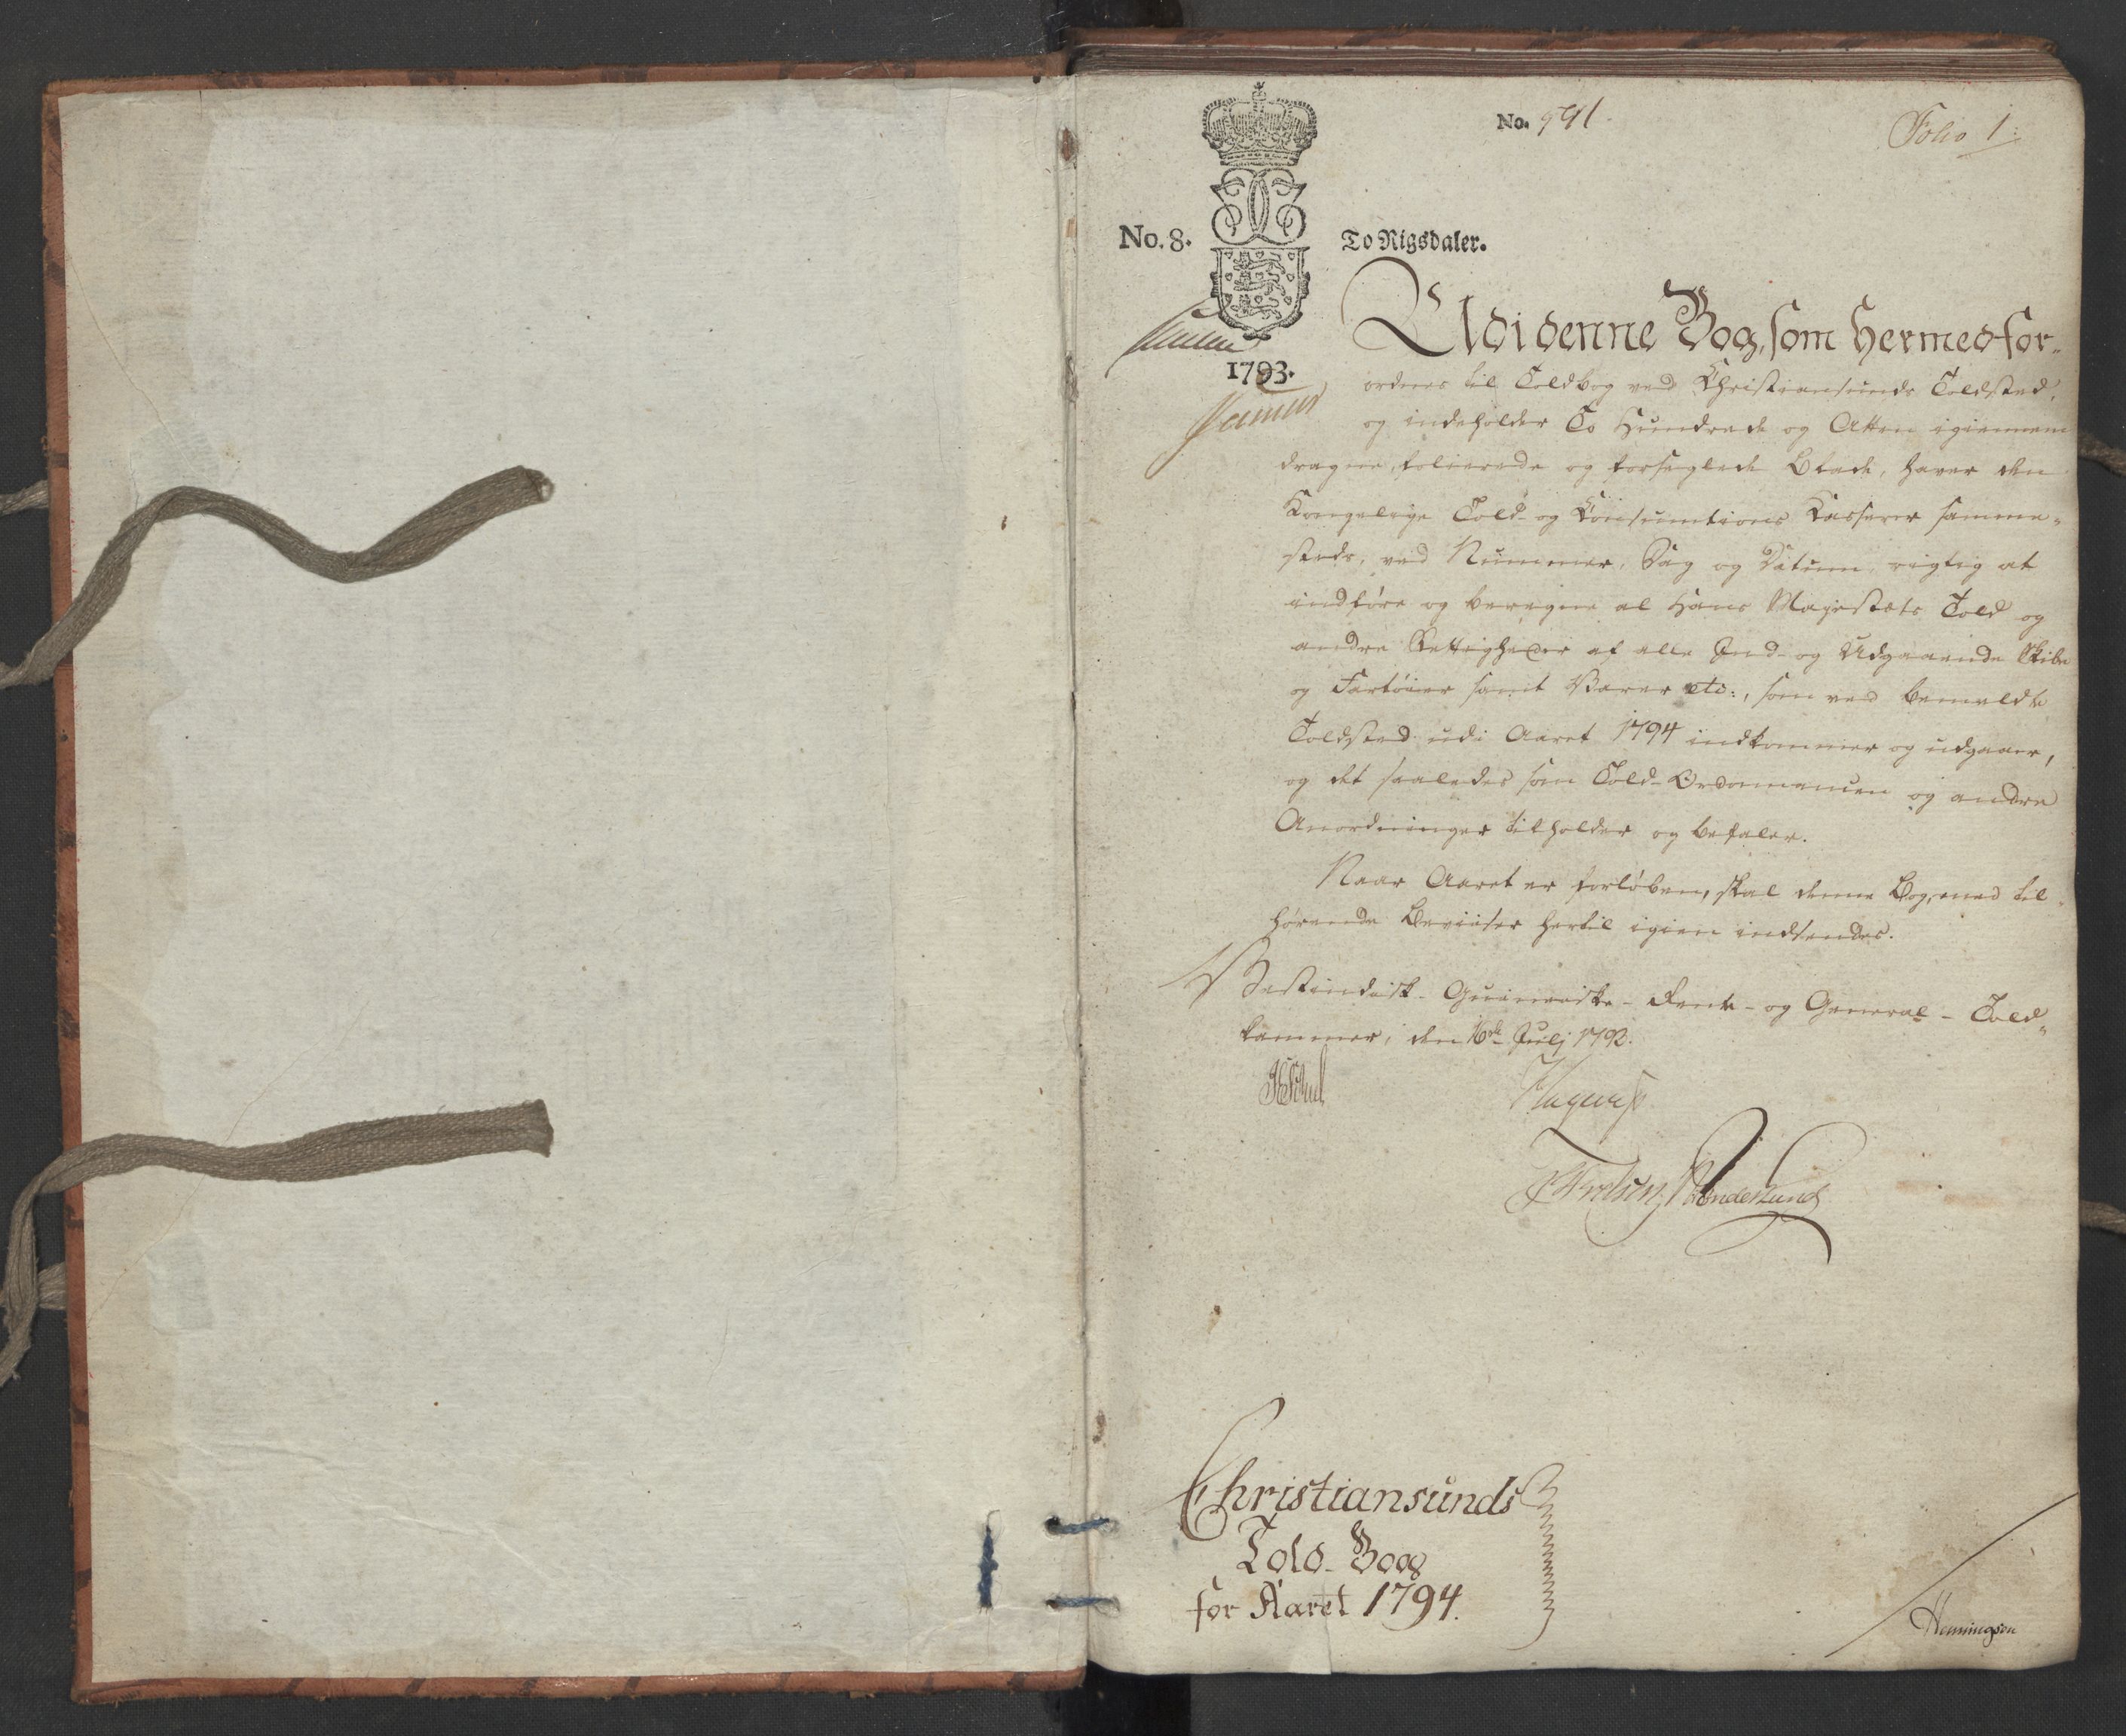 No. 991
Folio 1.
No. 8.
To Rigsdaler.
1793.
Udi denne Bog, som hermed for-
ordnes til Toldbog ved Christiansunds Toldsted,
og indeholder To Hundrede og Atten igiennem
dragne, folierede og forseglede Blade, haver den
Kongelige Told- og Consumtions Kasserer samme-
steds, ved Nummer, Dag og Datum, rigtig at
indføre og beregne al Hans Majestæts Told og
andre Rettigheder af alle Ind- og Udgaaende Skibe
og Fartøier samt Varer etc:, som ved bemeldte
Toldsted udi Aaret 1794 indkommer og udgaaer,
og det saaledes som Told-Ordonnancen og andre
Anordninger tilholder og befaler.
Naar Aaret er forløben, skal denne Bog, med til-
hørende Beviiser hertil igien indsendes.
Vestindisk- Guineiske- Rente- og General- Told-
kammer, den 16de Julj 1793.
Christiansunds
Told-Boog
for Aaret 1794.
Henningsen